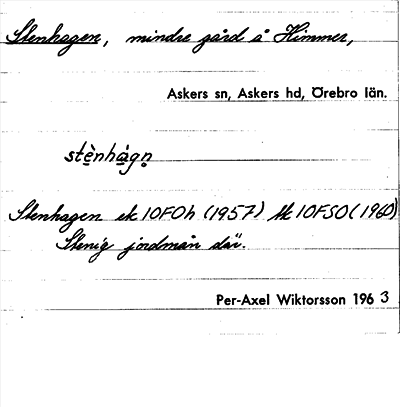 Stenhagen, mindre gård å Himmer,
Askers sn, Askers hd, Örebro län.
stè̱nhà̱gṇ
Stenhagen ek 10FOh (1957) tk 10FSO (1960)
Stenig jordmån där.
Per-Axel Wiktorsson 1963